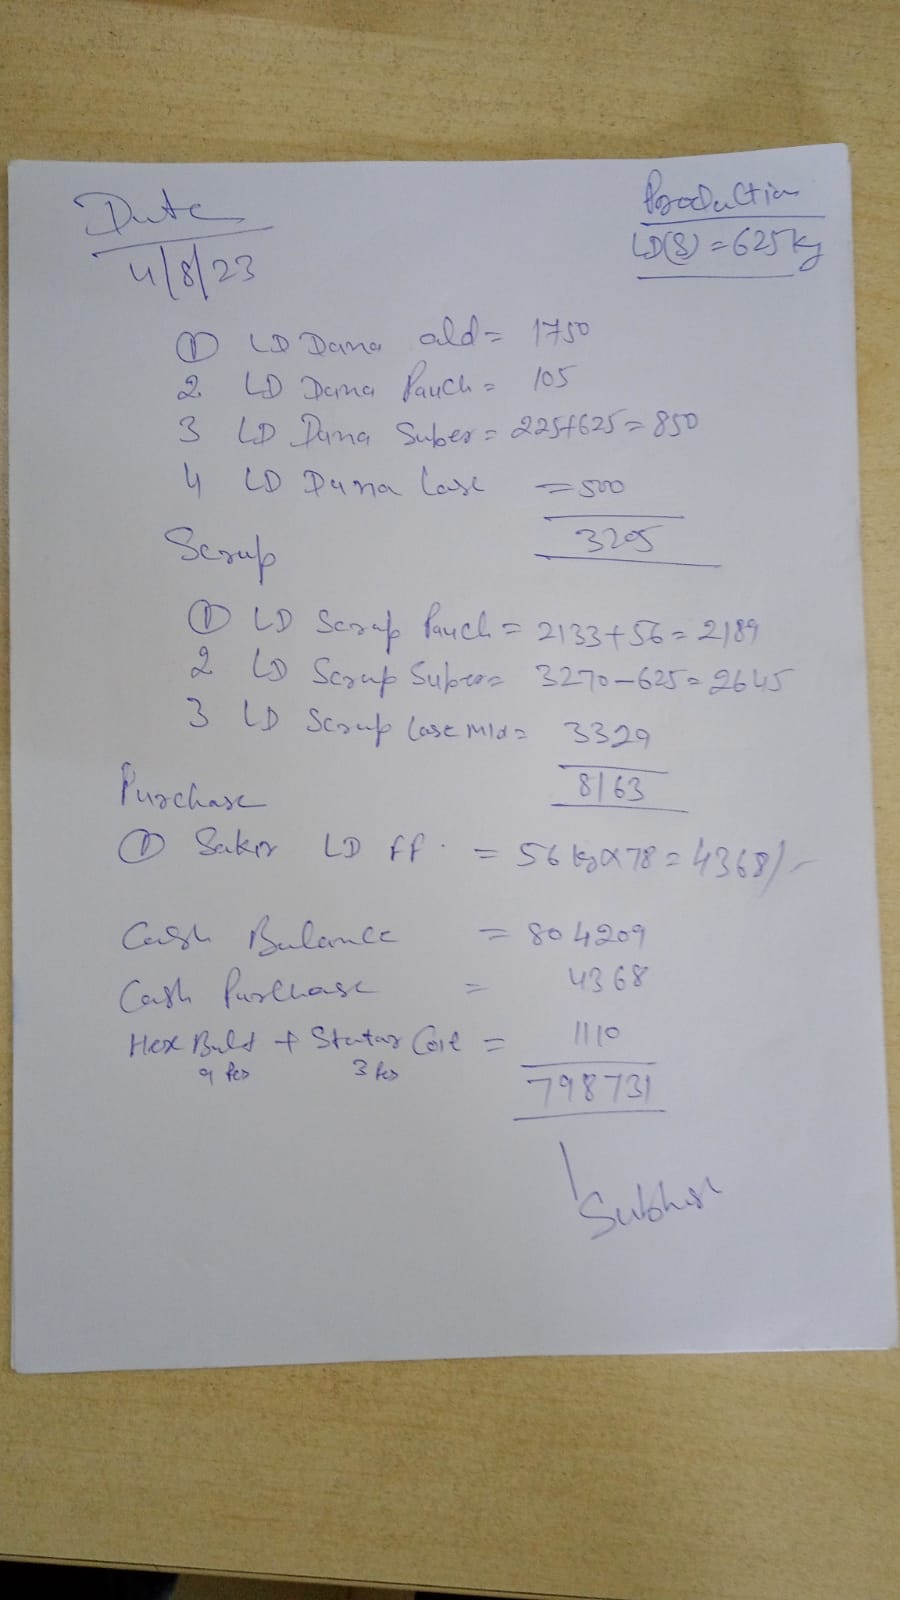 Date
4/8/23
Production
LD(S) = 625 kg
① LD Dana old = 1750
2 LD Dana Pauch = 105
3 LD Dana Suber = 225+625 = 850
4 LD Dana Case = 500
3205
Scrap
① LD Scrap Pauch = 2133+56 = 2189
2 LD Scrap Suber = 3270-625 = 2645
3 LD Scrap Case Mld = 3329
8163
Purchase
① Sakir LD ff. = 56 kg x 78 = 4368/-
Cash Balance = 804209
Cash Purchase = 4368
Hex Bult + Statar Coil = 1110
9 Pcs 3 Pcs
798731